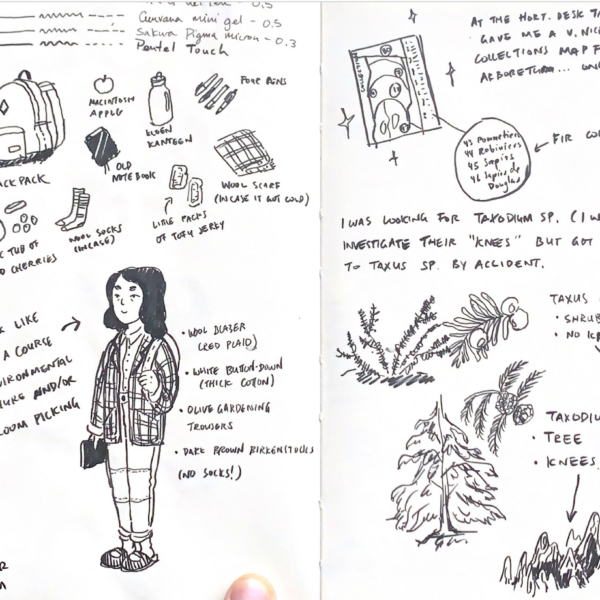 Curvana mini gel - 0.5
Sakura Pigma micron - 0.3
Pentel Touch
MACINTOSH
APPLE
KLEEN
KANTEEN
FOUR PENS
OLD
NOTEBOOK
WOOL SCARF
(INCASE IT GOT COLD)
LITTLE PACKS
OF TOFU JERKY
WOOL SOCKS
(INCASE)
TUB OF
CHERRIES
LIKE
A COURSE
AND/OR
PICKING
• WOOL BLAZER
(RED PLAID)
• WHITE BUTTON-DOWN
(THICK COTTON)
• OLIVE GARDENING
TROUSERS
• DARK BROWN BIRKENSTOCKS
(NO SOCKS!)
AT THE HORT. DESK
GAVE ME A V. NIC
COLLECTIONS MAP F
ARBORETUM...
43 Pommetiers
44 Robiniers
45 Sapins
46 Sapin de
Douglas
FIR CO
I WAS LOOKING FOR TAXODIUM SP. (I W
INVESTIGATE THEIR "KNEES" BUT GOT
TO TAXUS SP. BY ACCIDENT.
TAXUS
• SHRUB
• NO KN
TAXODIU
• TREE
• KNEES